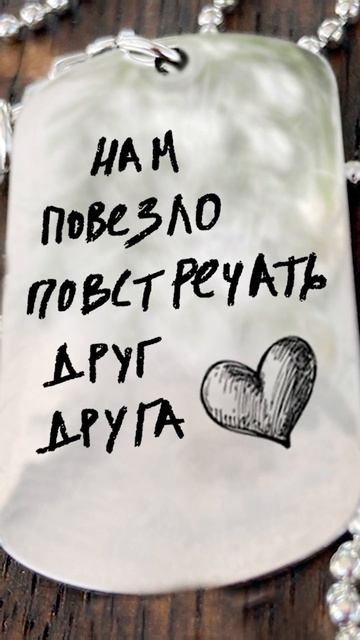 НАМ
ПОВЕЗЛО
ПОВСТРЕЧАТЬ
ДРУГ
ДРУГА